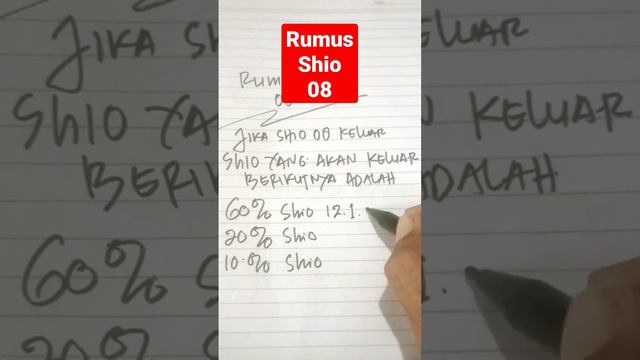 Rumus
Shio
08
JIKA SHIO 08 KELUAR
SHIO YANG AKAN KELUAR
BERIKUTNYA ADALAH
60% Shio 12.1.
20% Shio
10.% Shio